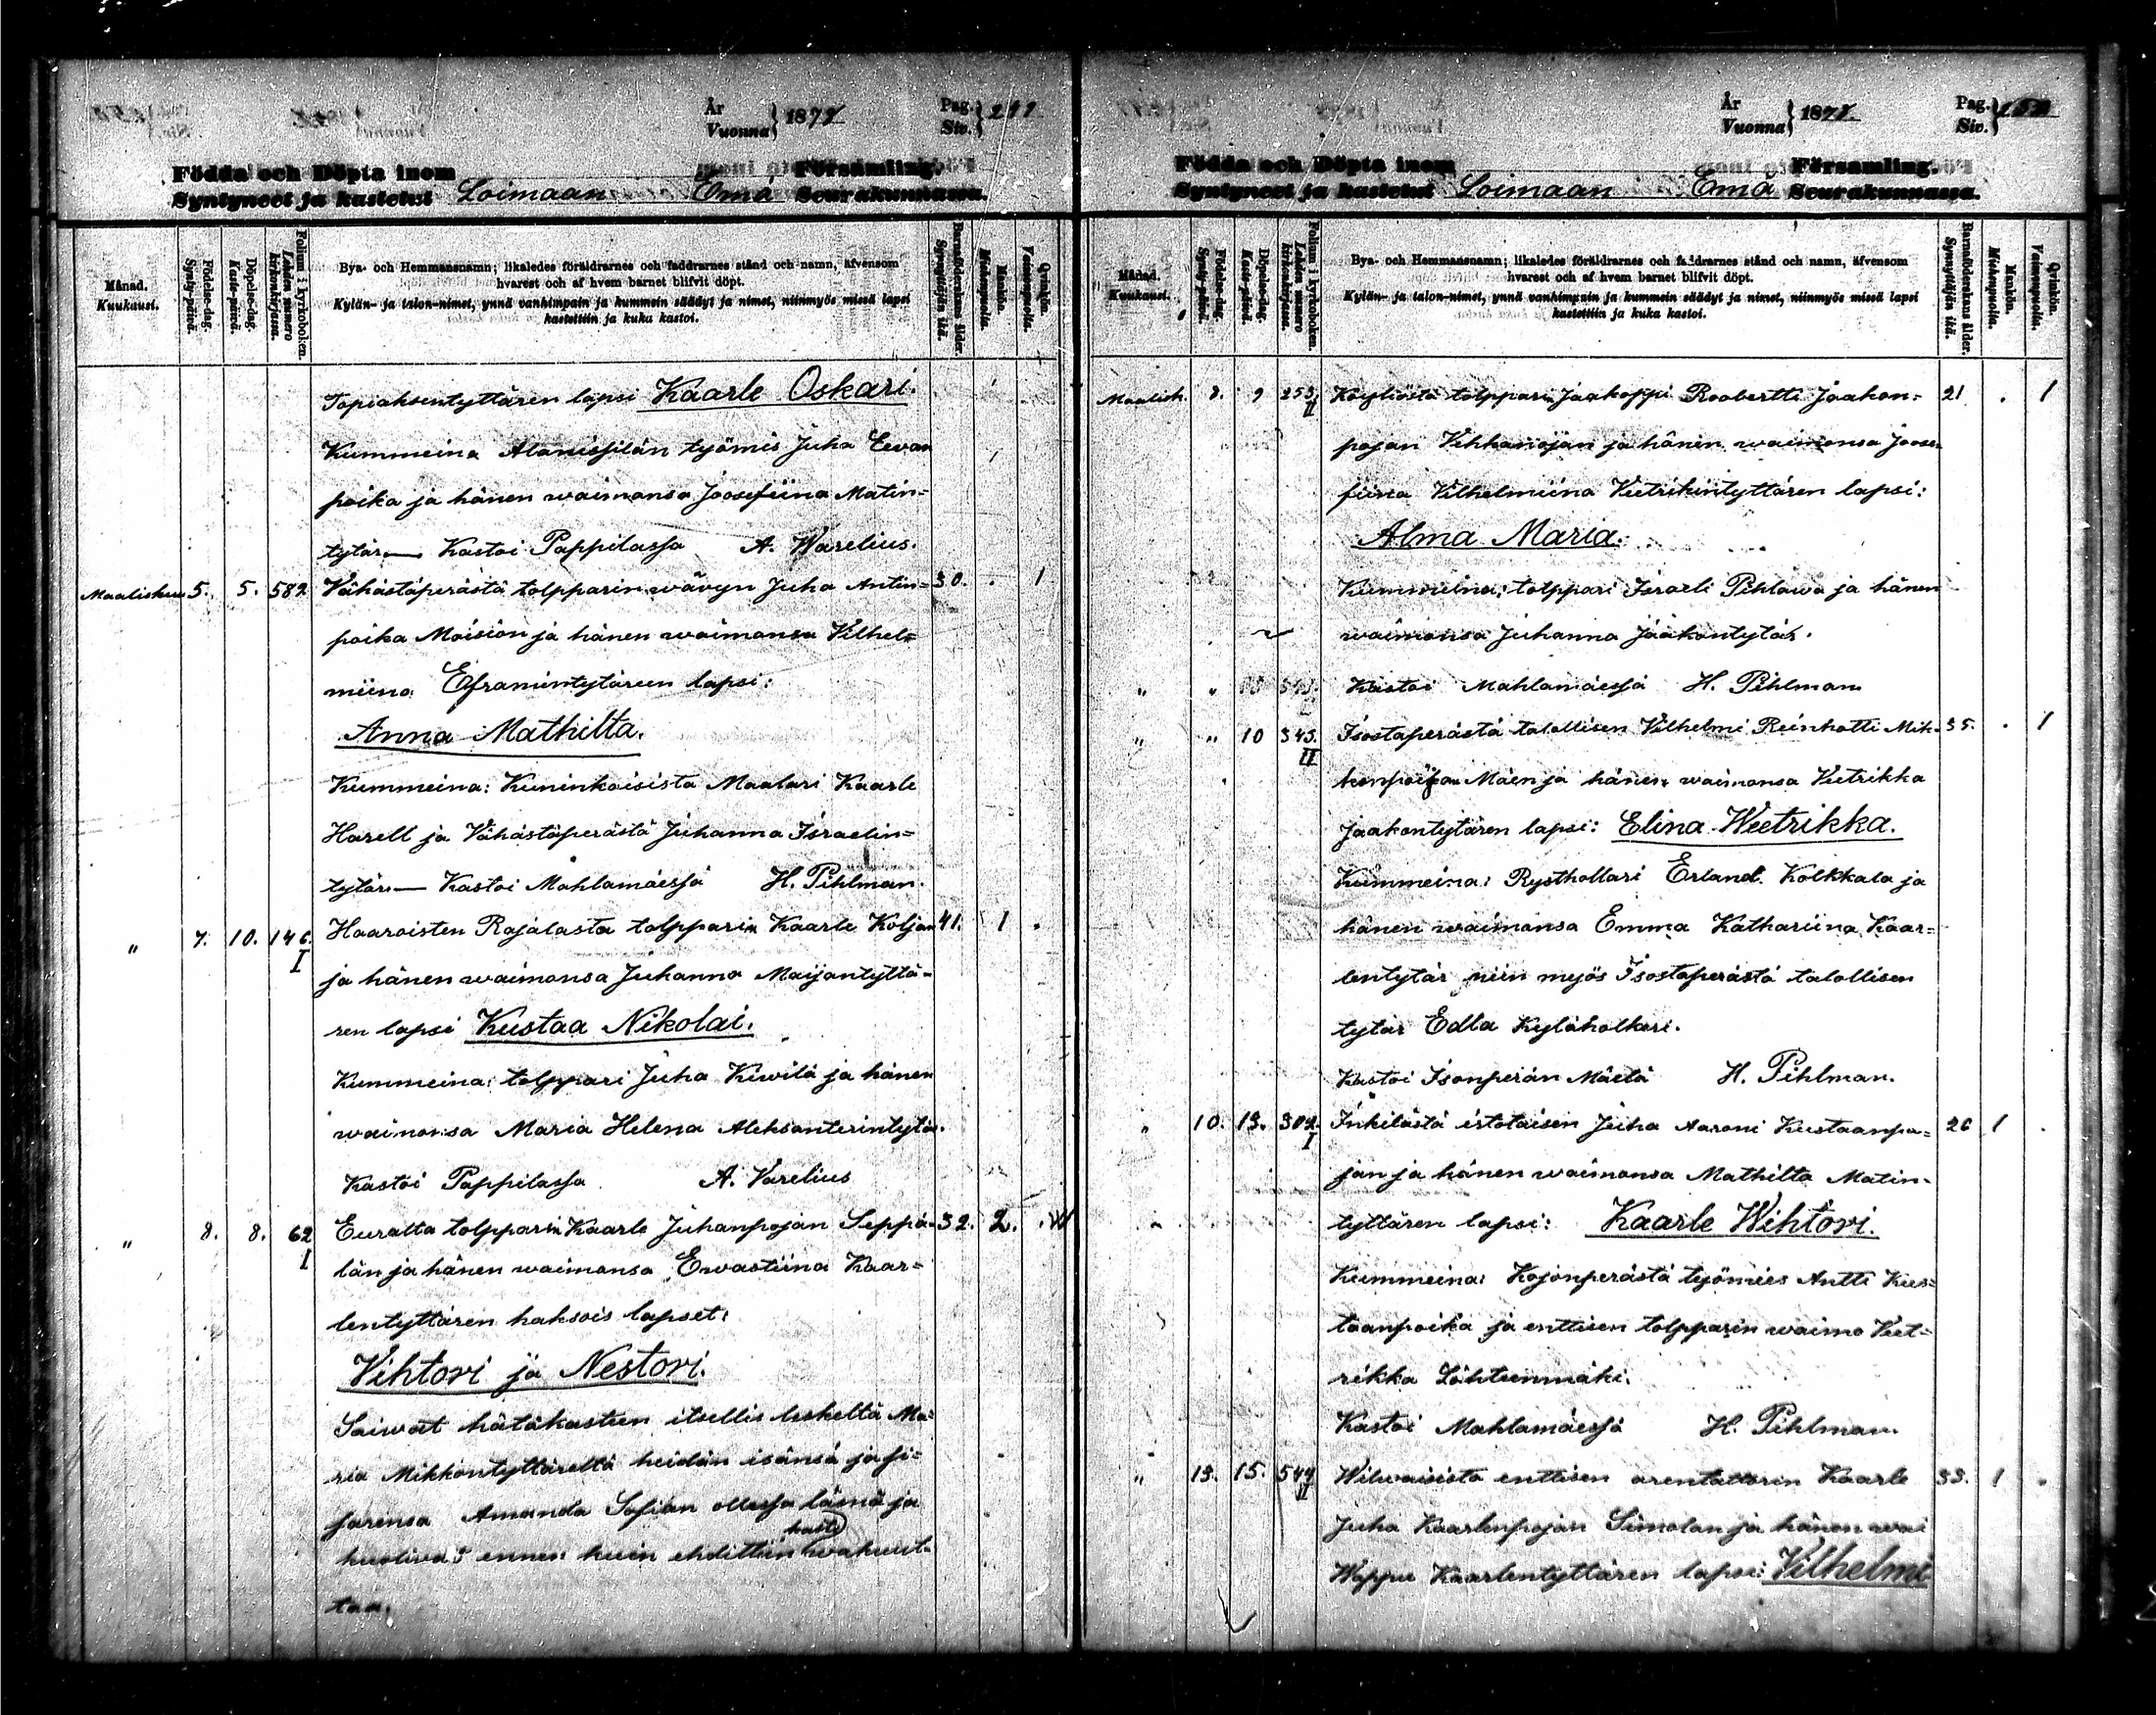 År Vuonna } 1878 Pag. Siv. } 249
Födda och Döpta inom Församling.
Syntyneet ja kastetut Loimaan Emä Seurakunnassa.
Månad. Kuukausi.
Födelse-dag. Synty-päivä.
Döpelse-dag. Kaste-päivä.
Folium i kyrkoboken. Lehden numero kirkonkirjassa.
Bya- och Hemmansnamn; likaledes föräldrarnes och faddrarnes stånd och namn, äfvensom
hvarest och af hvem barnet blifvit döpt.
Kylän- ja talon-nimet, ynnä vanhimpain ja kummein säädyt ja nimet, niinmyös missä lapsi
kastettiin ja kuka kastoi.
Barnaföderskans ålder. Synnyttäjän ikä.
Mankön. Miehenpuolia.
Qvinkön. Vaimonpuolia.
Topiaksentyttären lapsi Kaarle Oskari.
Kummeina Alanissilän työmis Juha Eevan
poika ja hänen waimonsa Joosefiina Matin=
tytär — Kastoi Pappilassa A. Warelius.
Maaliskuu 5. 5. 582 Vähästäperästä tolpparin wävyn Juha Antin= 30. . 1
poika Moision ja hänen waimonsa Vilhel=
miina Eframintytären lapsi:
Anna Mathilta.
Kummeina: Kuninkaisista Maalari Kaarle
Harell ja Vähästäperästä Juhanna Israelin=
tytär — Kastoi Mahlamäessä H. Pihlman.
" 7. 10. 146. I Haaroisten Rajalasta tolpparin Kaarle Koljan 41. 1 .
ja hänen waimonsa Juhanna Maijantyttä=
ren lapsi Kustaa Nikolai.
Kummeina: tolppari Juha Kiwilä ja hänen
waimonsa Maria Helena Aleksanterintytär.
Kastoi Pappilassa A. Varelius
" 8. 8. 62 I Euralta tolpparin Kaarle Juhanpojan Seppä= 32. 2.
län ja hänen waimonsa Ewastiina Kaar=
lentyttären kaksois lapset:
Vihtori ja Nestori.
Saiwat hätäkasteen itsellis leskeltä Ma=
ria Mikkontyttäreltä heidän isänsä ja si=
sarensa Amanda Sofian ollessa läsnä ja
kuolivat ennen kuin ehdittiin kaste wahwist=
taa.
År Vuonna } 1878 Pag. Siv. } 250
Födda och Döpta inom Församling.
Syntyneet ja kastetut Loimaan Emä Seurakunnassa.
Månad. Kuukausi.
Födelse-dag. Synty-päivä.
Döpelse-dag. Kaste-päivä.
Folium i kyrkoboken. Lehden numero kirkonkirjassa.
Bya- och Hemmansnamn; likaledes föräldrarnes och faddrarnes stånd och namn, äfvensom
hvarest och af hvem barnet blifvit döpt.
Kylän- ja talon-nimet, ynnä vanhimpain ja kummein säädyt ja nimet, niinmyös missä lapsi
kastettiin ja kuka kastoi.
Barnaföderskans ålder. Synnyttäjän ikä.
Mankön. Miehenpuolia.
Qvinkön. Vaimonpuolia.
Maalisk. 8. 9 253 II Köyliöstä tolppari Jaakoppi Roobertti Jaakon= 21 . 1
pojan Vehkanojan ja hänen waimonsa Joose=
fiina Vilhelmiina Vietrikintyttären lapsi:
Alma Maria.
Kummeina: tolppari Israeli Pihlawa ja hänen
waimonsa Juhanna Jaakontytär.
Kastoi Mahlamäessä H. Pihlman
" " 10 343. II Isostaperästä talollisen Vilhelmi Reinhotti Mik= 35. . 1
konpojan Mäen ja hänen waimonsa Vietrikka
Jaakontytären lapsi: Elina Weetrikka.
Kummeina: Rysthollari Erland. Kolkkala ja
hänen waimonsa Emma Kathariina Kaar=
lentytär niin myös Isostaperästä talollisen
tytär Edla Kylähollari.
Kastoi Isonperän Mäelä H. Pihlman.
" 10. 13. 302. I Inkilästä istotaisen Juha Aaroni Kustaanpo= 26 1 .
jan ja hänen waimonsa Mathilta Matin=
tyttären lapsi: Kaarle Wihtori.
Kummeina: Kojonperästä työmies Antti Kus=
taanpoika ja enttisen tolpparin waimo Viet=
rikka Lähteenmäki.
Kastoi Mahlamäessä H. Pihlman.
" 13. 15. 544 II Wilwaisista enttisen arentattorin Kaarle 33. 1 .
Juha Kaarlenpojan Simolan ja hänen wai
Wappu Kaarlentyttären lapsi: Vilhelmi